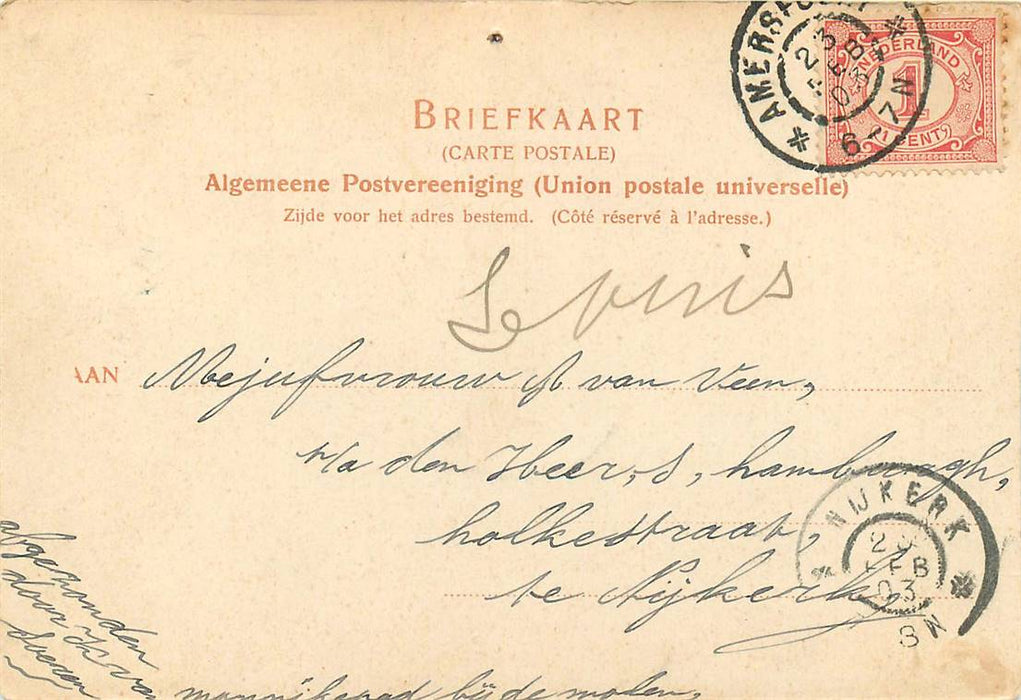 AMERSFOORT
23 FEB 03
6-7N
NEDERLAND
1
CENT
BRIEFKAART
(CARTE POSTALE)
Algemeene Postvereeniging (Union postale universelle)
Zijde voor het adres bestemd. (Côté réservé à l'adresse.)
AAN Mejufvrouw A van Veen,
p/a den Heer, S, hamburgh,
holkestraat,
te Nijkerk,
NIJKERK
FEB 03
8N
afgezonden
door
bij de molen,